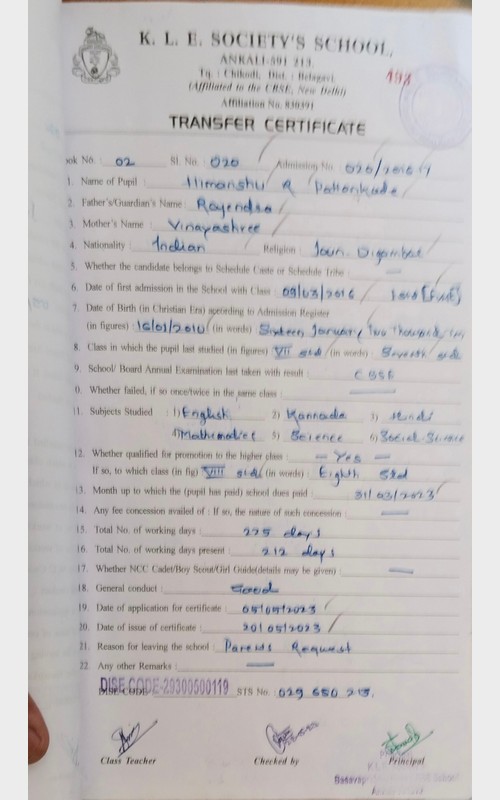 K. L. E. SOCIETY'S SCHOOL,
ANKALI-591 213.
Tq. : Chikodi, Dist. : Belagavi
(Affiliated to the CBSE, New Delhi)
Affiliation No. 830391
498
TRANSFER CERTIFICATE
ook No. 02 Sl. No. 020 Admission No. 020/2016-17
1. Name of Pupil : Himanshu R Pattankude
2. Father's/Guardian's Name : Rajendra
3. Mother's Name : Vinayashree
4. Nationality : Indian Religion : Jain. Digambar
5. Whether the candidate belongs to Schedule Caste or Schedule Tribe : —
6. Date of first admission in the School with Class : 09/03/2016
7. Date of Birth (in Christian Era) according to Admission Register
(in figures) 16/01/2010 (in words) Sixteen January Two Thousand
8. Class in which the pupil last studied (in figures) VII std (in words) : Seventh std
9. School/ Board Annual Examination last taken with result : CBSE
0. Whether failed, if so once/twice in the same class : —
11. Subjects Studied : 1) English 2) Kannada 3) Hindi
4) Mathematics 5) Science 6) Social-Science
12. Whether qualified for promotion to the higher class : — Yes —
If so, to which class (in fig) VIII std (in words) : Eighth Std
13. Month up to which the (pupil has paid) school dues paid : 31/03/2023
14. Any fee concession availed of : If so, the nature of such concession : —
15. Total No. of working days : 225 days
16. Total No. of working days present : 212 days
17. Whether NCC Cadet/Boy Scout/Girl Guide(details may be given) : —
18. General conduct : Good
19. Date of application for certificate : 05/05/2023
20. Date of issue of certificate : 20/05/2023
21. Reason for leaving the school : Parents Request
22. Any other Remarks : —
DISE-CODE-29300500119 STS No. : 029 680 213.
Class Teacher Checked by Principal